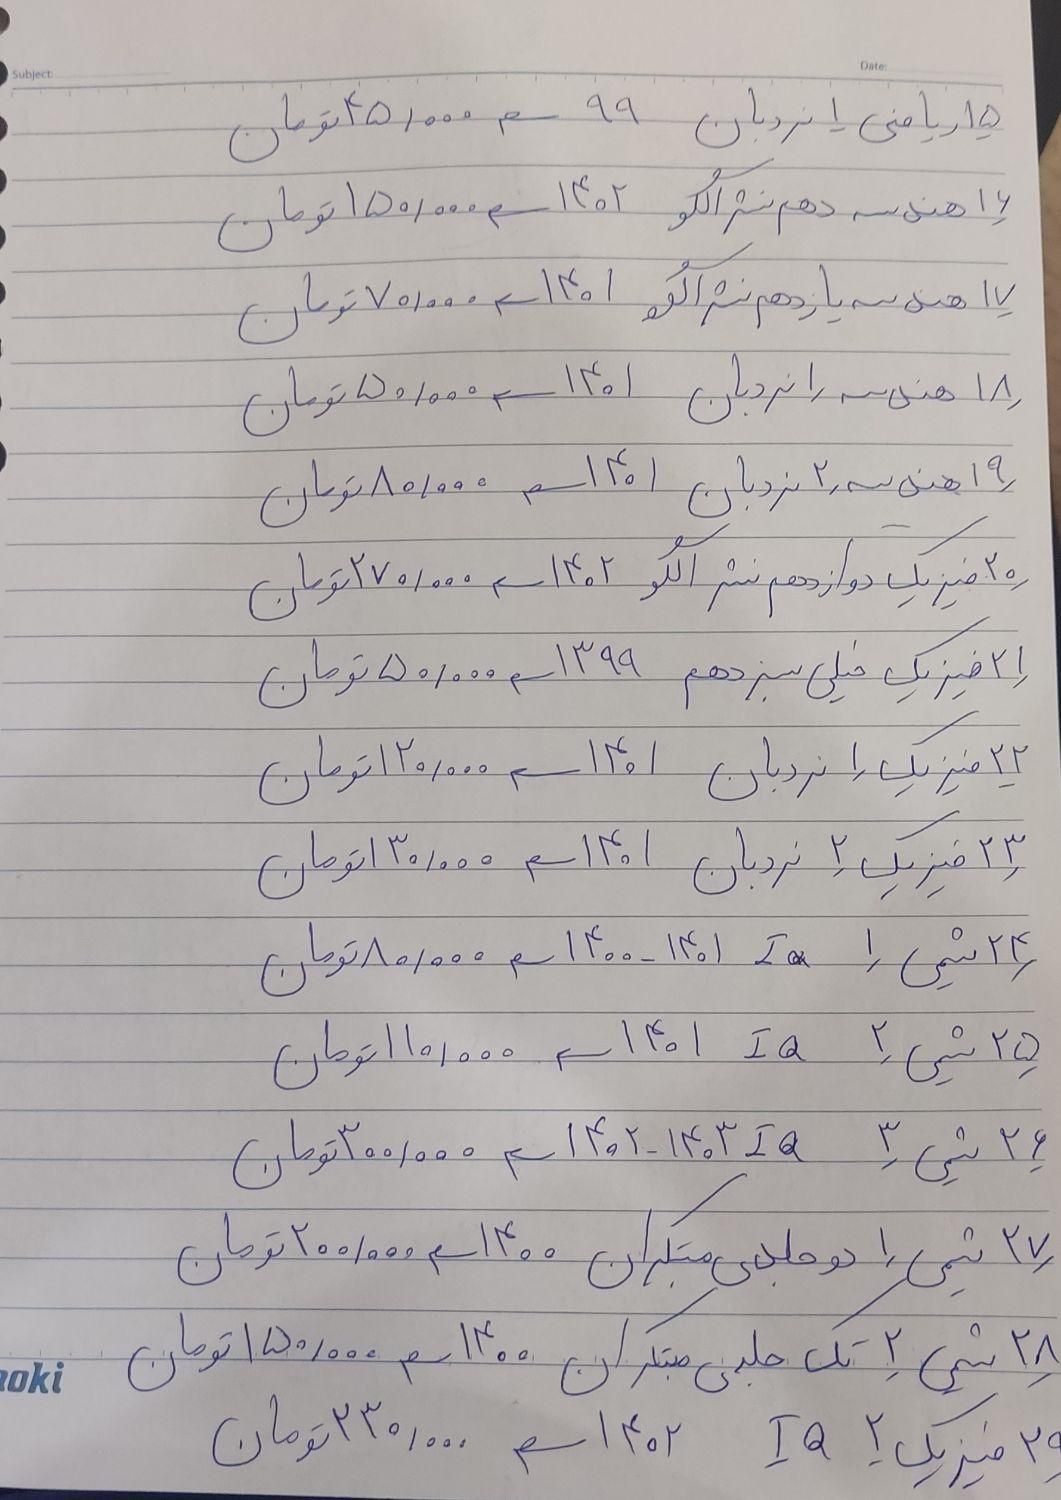 Subject: Date:
۱۵ ریاضی ۱ نردبان ۹۹ ← ۴۵/۰۰۰ تومان
۱۶ هندسه دهم نشر الگو ۱۴۰۲ ← ۱۵۰/۰۰۰ تومان
۱۷ هندسه یازدهم نشر الگو ۱۴۰۱ ← ۷۰/۰۰۰ تومان
۱۸ هندسه ۱ نردبان ۱۴۰۱ ← ۵۰/۰۰۰ تومان
۱۹ هندسه ۲ نردبان ۱۴۰۱ ← ۸۰/۰۰۰ تومان
۲۰ فیزیک دوازدهم نشر الگو ۱۴۰۲ ← ۲۷۰/۰۰۰ تومان
۲۱ فیزیک خیلی سبز دهم ۱۳۹۹ ← ۵۰/۰۰۰ تومان
۲۲ فیزیک ۱ نردبان ۱۴۰۱ ← ۱۲۰/۰۰۰ تومان
۲۳ فیزیک ۲ نردبان ۱۴۰۱ ← ۱۳۰/۰۰۰ تومان
۲۴ شیمی ۱ IQ ۱۴۰۱-۱۴۰۰ ← ۸۰/۰۰۰ تومان
۲۵ شیمی ۲ IQ ۱۴۰۱ ← ۱۱۰/۰۰۰ تومان
۲۶ شیمی ۳ IQ ۱۴۰۳-۱۴۰۲ ← ۳۰۰/۰۰۰ تومان
۲۷ شیمی ۱ دو جلدی مبتکران ۱۴۰۰ ← ۲۰۰/۰۰۰ تومان
۲۸ شیمی ۲ تک جلدی مبتکران ۱۴۰۰ ← ۱۵۰/۰۰۰ تومان
۲۹ فیزیک ۲ IQ ۱۴۰۲ ← ۲۳۰/۰۰۰ تومان
oki